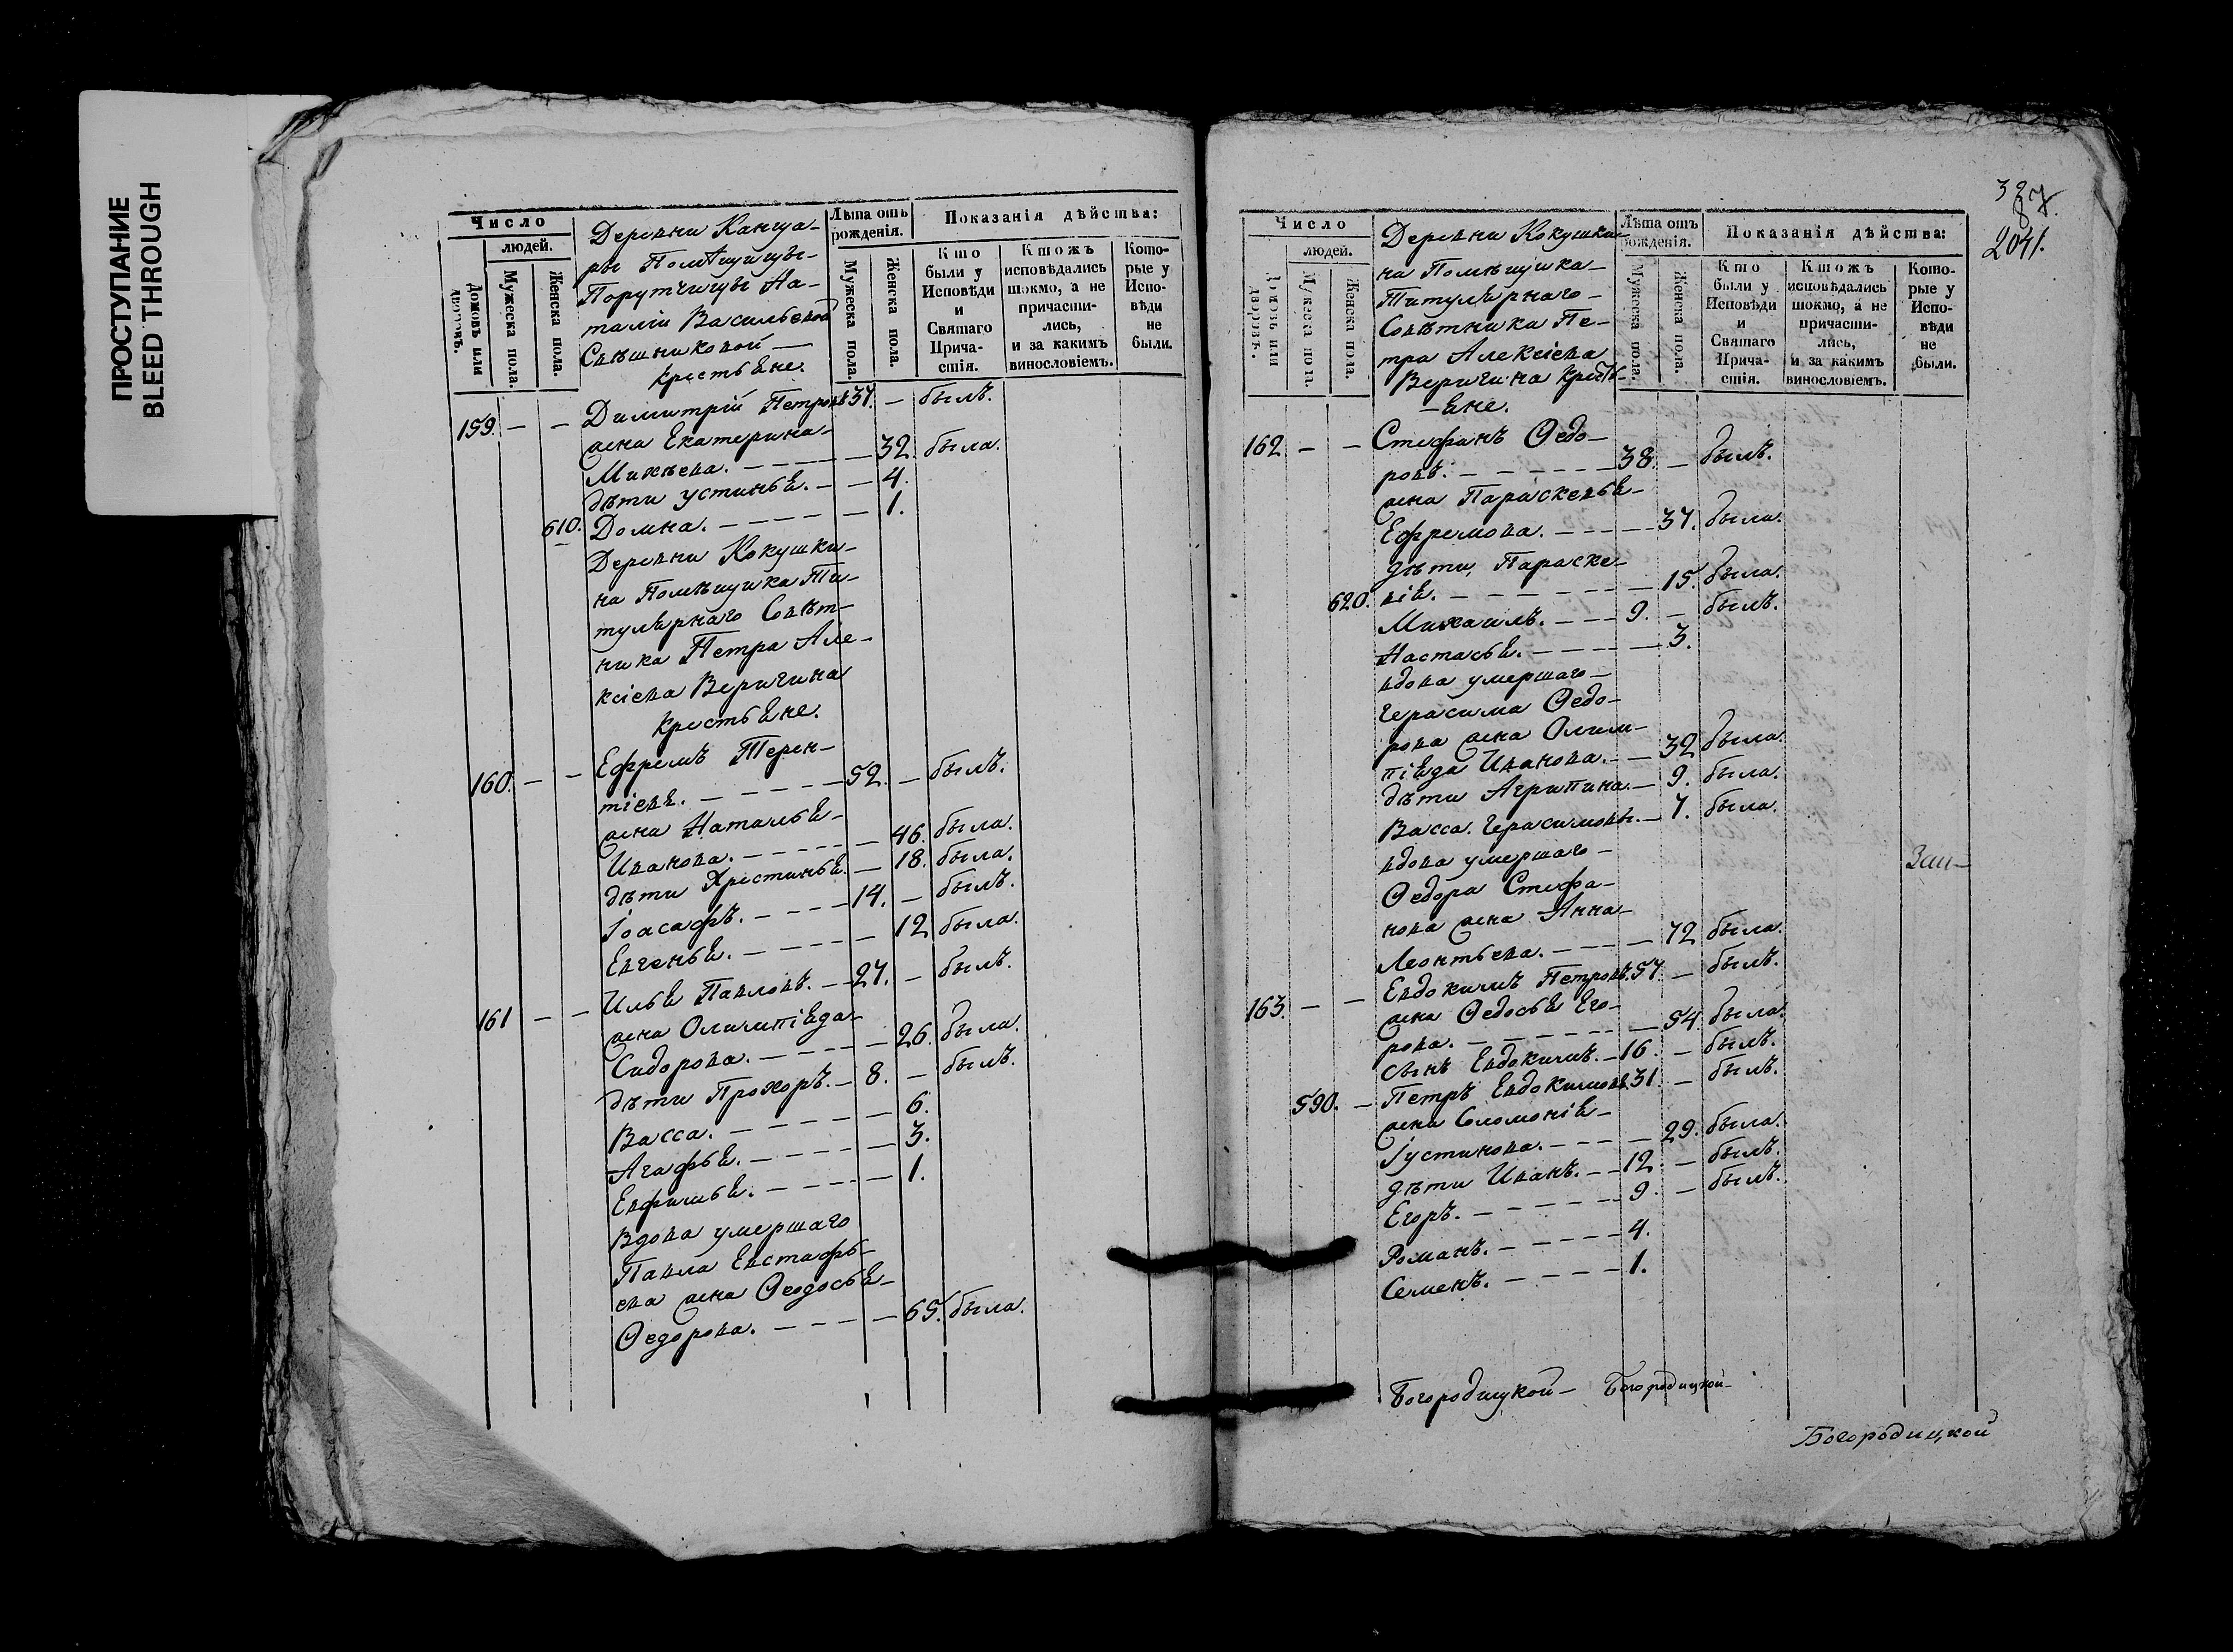 ПРОСТУПАНИЕ
BLEED THROUGH
Число
людей.
Домовъ или дворовъ.
Мужеска пола.
Женска пола.
Деревни Канца-
ры Помѣщицы-
Порутчицы На-
таліи Васильевой
Свѣшниковой-
крестьяне.
Лѣта отъ рожденія.
Мужеска пола.
Женска пола.
Показанія дѣйства:
Кто были у Исповѣди и Святаго Прича-стія.
Ктожъ исповѣдались токмо, а не причасти-лись, и за какимъ винословіемъ.
Кото-рые у Испо-вѣди не были.
159. - - Димитрій Петровъ 37. - былъ.
жена Екатерина-
Михѣева. - - - - - 32. была.
дѣти Устинья. - - 4.
610. Домна. - - - - - 1.
Деревни Кокушки-
на Помѣщика Ти-
тулярнаго Совѣт-
ника Петра Але-
ксіева Веригина
крестьяне.
160. - - Ефремъ Терен-
тіевъ. - - - - - 52. - былъ.
жена Наталья-
Иванова. - - - - - 46. была.
дѣти Христинья. - 18. была.
Іоасафъ. - - - - 14. - былъ.
Евгенья. - - - - - 12 была.
161 - - Илья Павловъ. - 27. - былъ.
жена Олимпіяда-
Сидорова. - - - - - 26. была.
дѣти Прохоръ. - 8. - былъ.
Васса. - - - - - 6.
Агафья. - - - - - 3.
Евфимья. - - - - - 1.
Вдова умершаго
Павла Евстафь-
ева жена Феодосья-
Федорова. - - - - - 65. была.
327
8
2041.
Число
людей.
Домовъ или дворовъ.
Мужеска пола.
Женска пола.
Деревни Кокушки-
на Помѣщика-
Титулярнаго-
Совѣтника Пе-
тра Алексіева
Веригина кресть-
-яне.
Лѣта отъ рожденія.
Мужеска пола.
Женска пола.
Показанія дѣйства:
Кто были у Исповѣди и Святаго Прича-стія.
Ктожъ исповѣдались токмо, а не причасти-лись, и за какимъ винословіемъ.
Кото-рые у Испо-вѣди не были.
162 - - Стефанъ Ѳедо-
ровъ. - - - - - 38. - былъ.
жена Параскевья-
Ефремова. - - - - 37. была.
дѣти, Параске-
620. вія. - - - - - 15. была.
Михаилъ. - - - 9. - былъ.
Настасья. - - - - - 3.
вдова умершаго-
Герасима Ѳедо-
рова жена Олим-
піяда Иванова. - - 32 была.
дѣти Агрипина. - 9. была.
Васса. Герасимовы. - 7. была.
вдова умершаго-
Ѳедора Стефа-
нова жена Анна-
Леонтьева. - - - - 72 была.
163. - - Евдокимъ Петровъ. 57. - былъ.
жена Ѳедосья Его-
рова. - - - - - 54. была.
сынъ Евдокимъ. - 16. - былъ.
590. - Петръ Евдокимовъ 31. - былъ.
жена Соломонія-
Іустинова. - - - - 29. была.
дѣти Иванъ. - - 12. - былъ.
Егоръ. - - - - - 9. - былъ.
Романъ. - - - - - 4.
Семенъ. - - - - - 1.
Богородицкой- Богородицкой-
Богородицкой